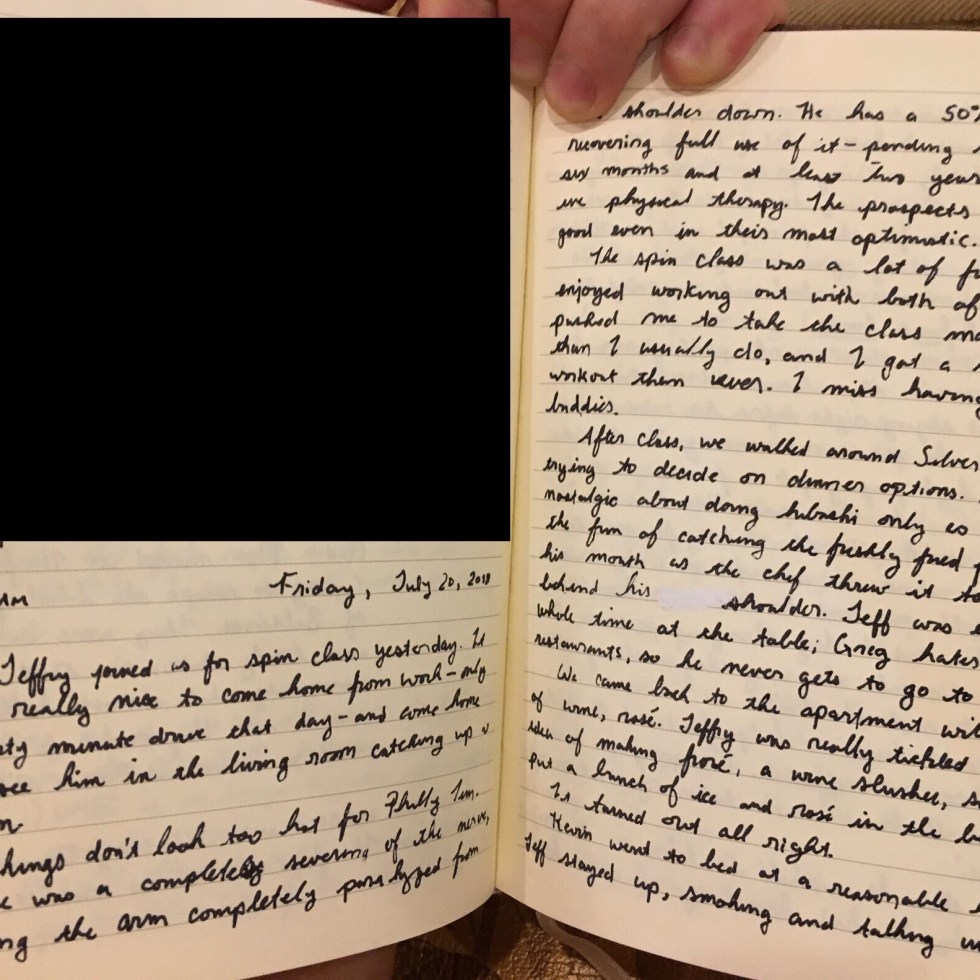 Friday, July 20, 2018
Jeffry joined us for spin class yesterday. It
really nice to come home from work - only
minute drive that day - and come home
see him in the living room catching up
things don't look too hot for Philly Jim.
was a completely severing of the nerve,
the arm completely paralyzed from
shoulder down. He has a 50%
recovering full use of it - pending
six months and at least two years
physical therapy. The prospects
good even in their most optimistic.
The spin class was a lot of
enjoyed working out with both of
pushed me to take the class
than I usually do, and I got a
workout than ever. I miss having
buddies.
After class, we walked around Silver
trying to decide on dinner options.
nostalgic about doing hibachi only
the fun of catching the freshly fried
his mouth as the chef threw it
behind his shoulder. Jeff was
whole time at the table; Greg hates
restaurants, so he never gets to go to
We came back to the apartment
of wine, rosé. Jeffry was really tickled
idea of making frosé, a wine slushee,
put a bunch of ice and rosé in the
It turned out all right.
Kevin went to bed at a reasonable
Jeff stayed up, smoking and talking